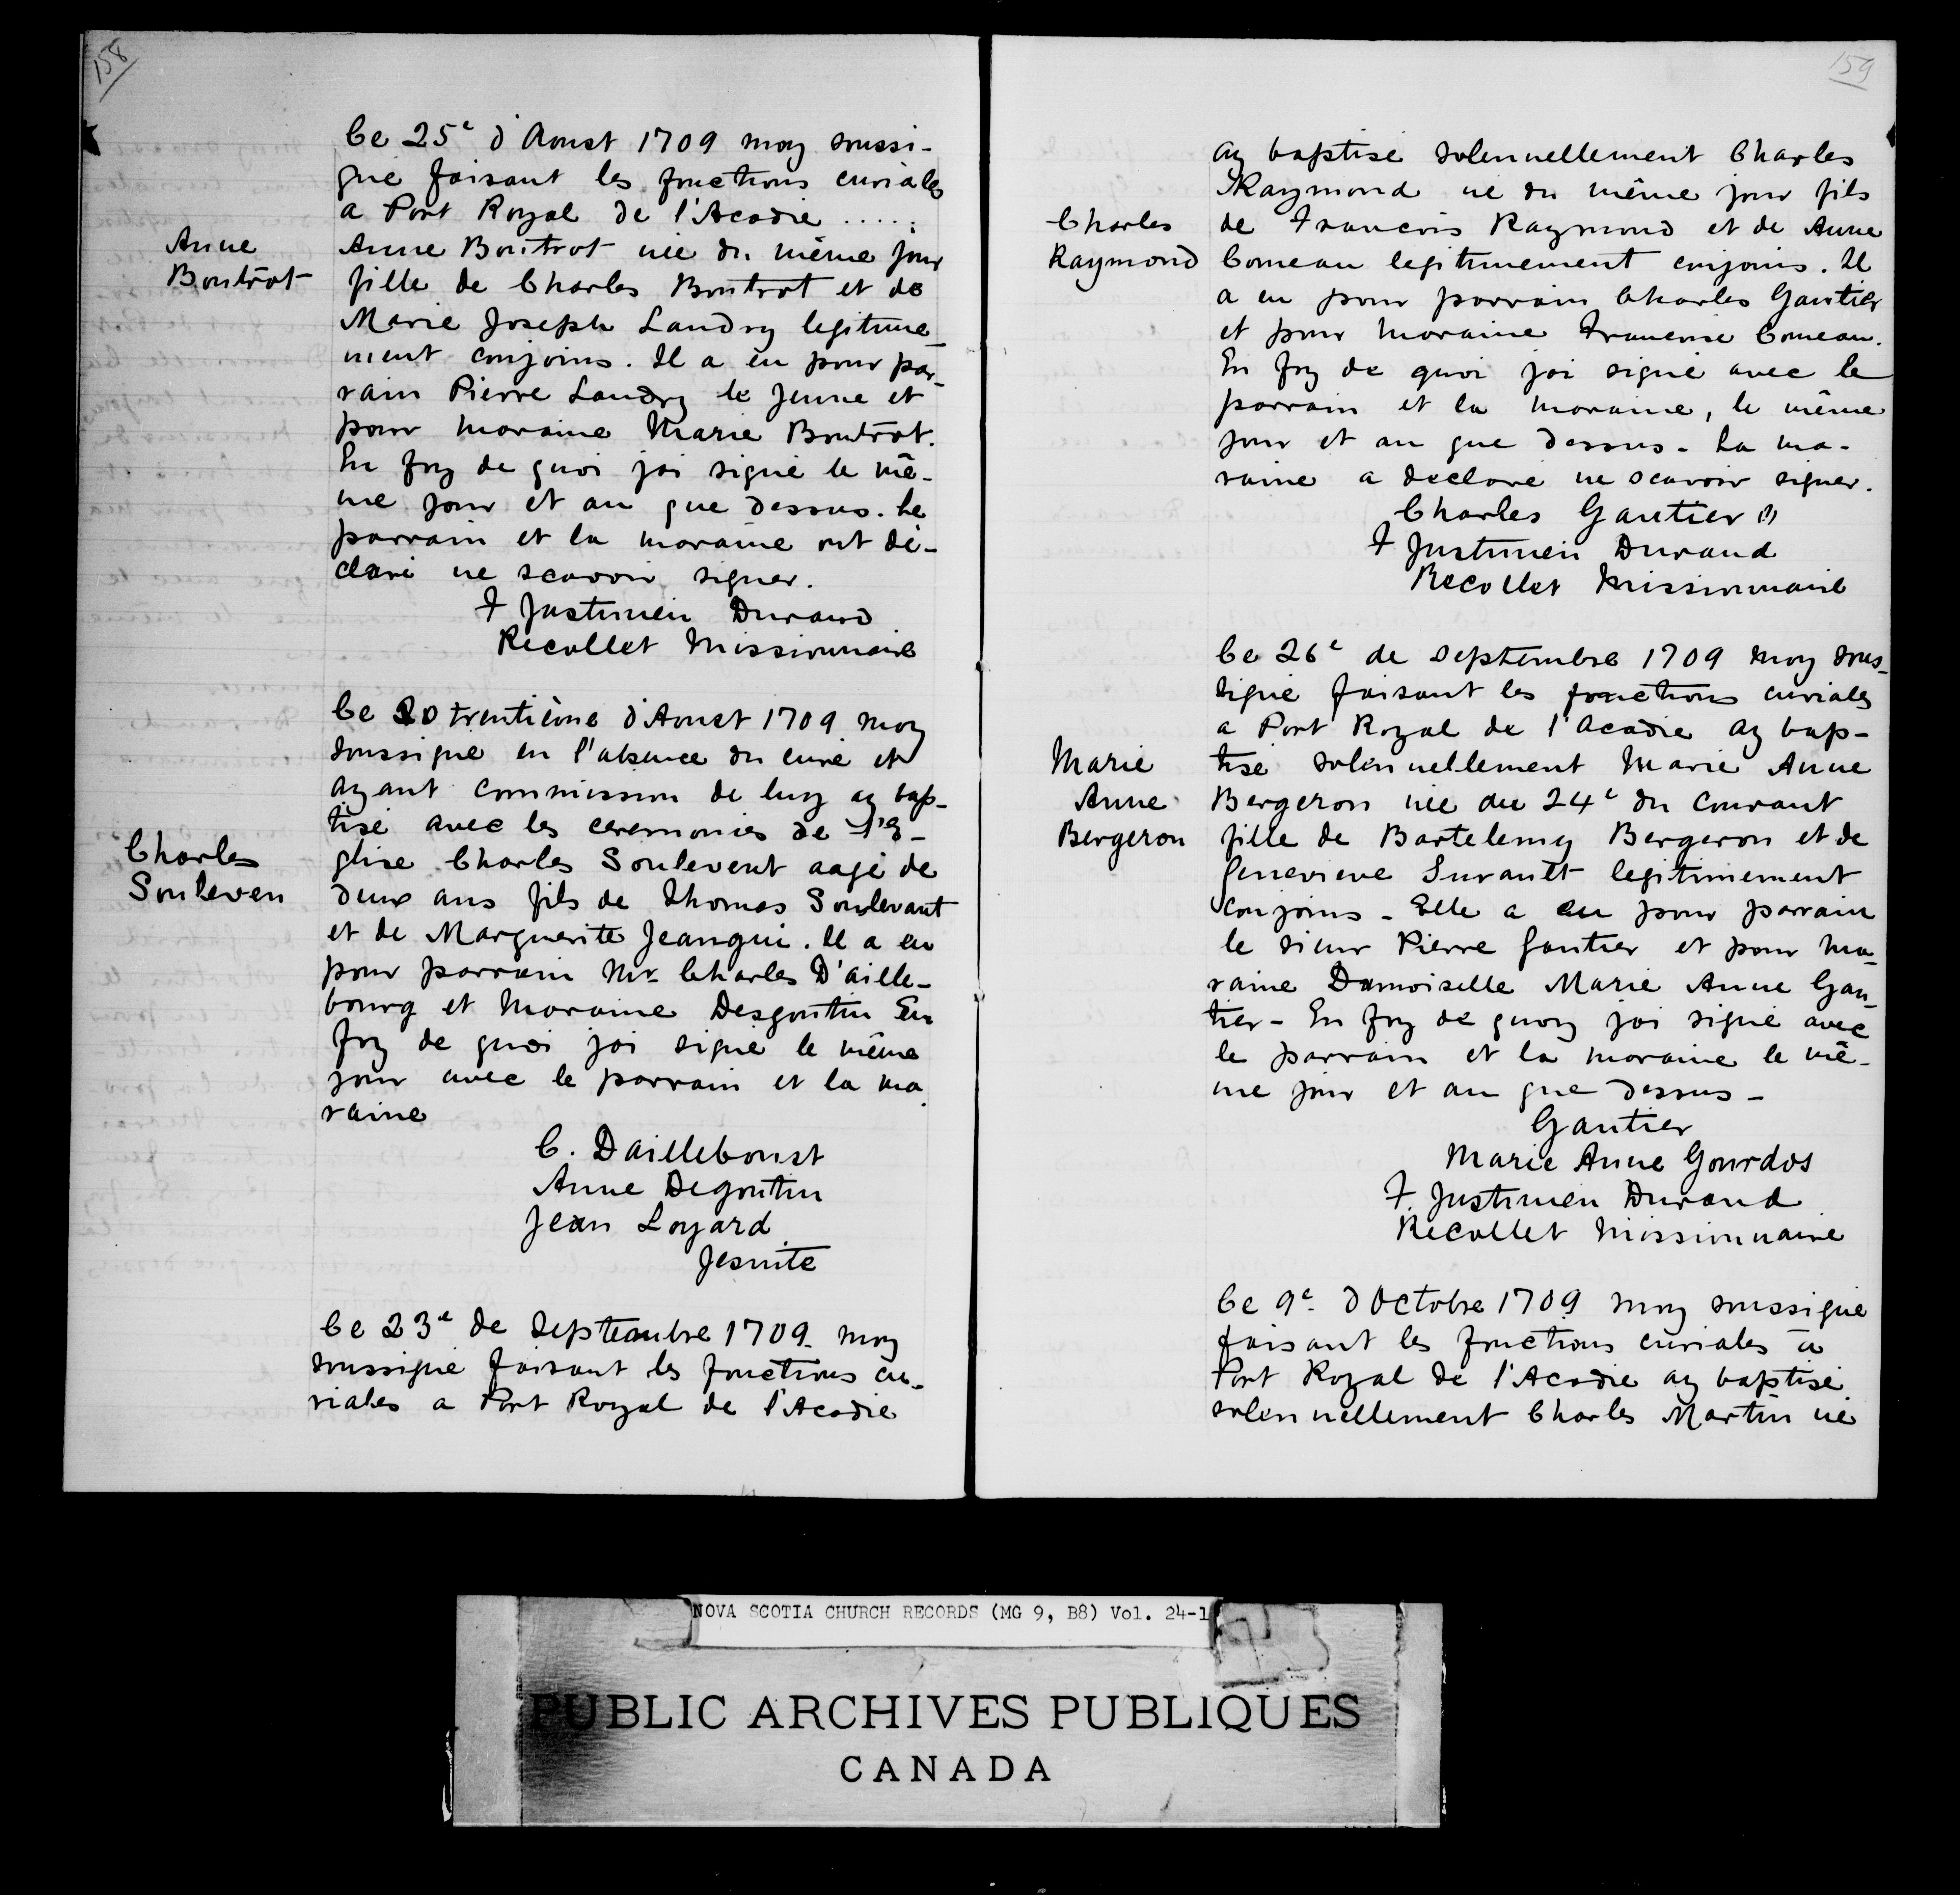 158
Ce 25e d'Aoust 1709 moy soussi-
gné faisant les fonctions curiales
a Port Royal de l'Acadie .....
Anne
Boutrot
Anne Boutrot née du même jour
fille de Charles Boutrot et de
Marie Joseph Landry legitime-
ment conjoins. Il a eu pour par-
rain Pierre Landry le jeune et
pour maraine Marie Boutrot.
En foy de quoi jai signé le mê-
me jour et an que dessus. Le
parrain et la maraine ont dé-
claré ne scavoir signer.
F Justinien Durand
Recollet Missionnaire
Ce 20 trentième d'Aoust 1709 moy
soussigné en l'absence du curé et
ayant commission de luy ay bap-
tisé avec les ceremonies de l'E-
Charles
Souleven
glise Charles Soulevent aagé de
deux ans fils de Thomas Soulevant
et de Marguerite Jeanqui. Il a eu
pour parrain Mr Charles D'aille-
bourg et Maraine Desgoutin En
foy de quoi jai signé le même
jour avec le parrain et la ma-
raine
C. Dailleboust
Anne Degoutin
Jean Loyard
Jesuite
Ce 23e de Septembre 1709 moy
soussigné faisant les fonctions cu-
riales a Port Royal de l'Acadie
159
ay baptisé solennellement Charles
Raymond né du même jour fils
Charles
Raymond
de Francois Raymond et de Anne
Comeau legitimement conjoins. Il
a eu pour parrain Charles Gautier
et pour Moraine Francoise Comeau.
En foy de quoi jai signé avec le
parrain et la Moraine, le même
jour et an que dessus - La ma-
raine a declaré ne scavoir signer.
Charles Gautier
F Justinien Durand
Recollet Missionnaire
Ce 26e de Septembre 1709 moy sous-
signé faisant les fonctions curiales
a Port Royal de l'Acadie ay bap-
Marie
Anne
Bergeron
tisé solennellement Marie Anne
Bergeron née du 24e du Courant
fille de Bartelemy Bergeron et de
Genevieve Suraûtt legitimement
Conjoins - Elle a eu pour parrain
le sieur Pierre Gautier et pour Ma-
raine Damoiselle Marie Anne Gau-
tier - En foy de quoy jai signé avec
le parrain et la maraine le mê-
me jour et an que dessus -
Gautier
Marie Anne Gourdos
F. Justinien Durand
Recollet Missionnaire
Ce 9e d Octobre 1709 moy soussigné
faisant les fonctions curiales a
Port Royal de l'Acadie ay baptisé
solennellement Charles Martin né
NOVA SCOTIA CHURCH RECORDS (MG 9, B8) Vol. 24-1
PUBLIC ARCHIVES PUBLIQUES
CANADA